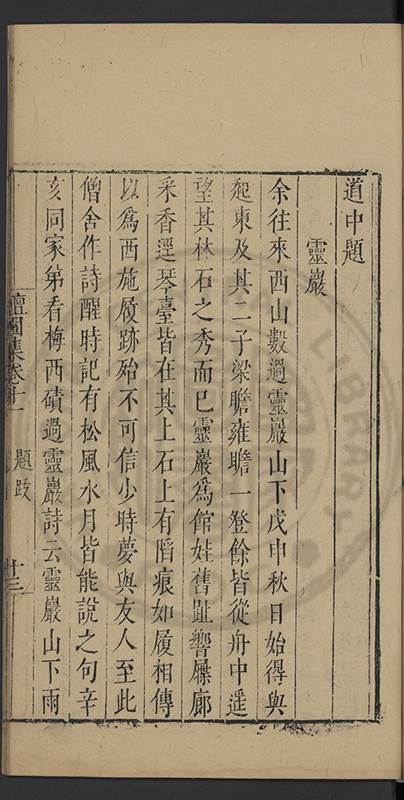 道中題
靈巖
余往來西山數過靈巖山下戊申秋日始得與
甦東及其二子梁瞻雍瞻一登餘皆從舟中遥
望其林石之秀而已靈巖爲館娃舊趾響屧廊
采香逕琴臺皆在其上石上有陷痕如履相傳
以爲西施履跡殆不可信少時夢與友人至此
僧舍作詩醒時記有松風水月皆能說之句辛
亥同家第看梅西磧過靈巖詩云靈巖山下雨
檀園集卷十一
題跋
十三